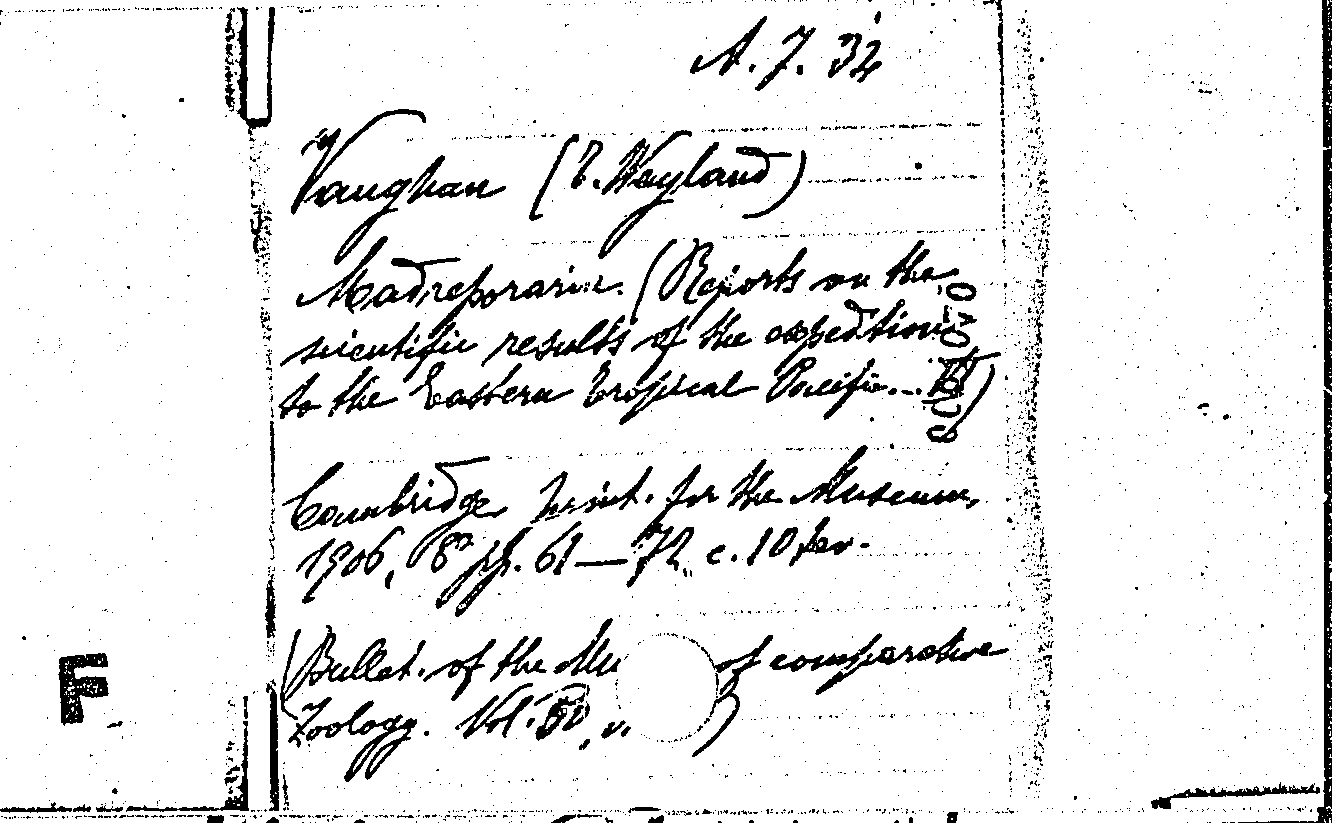 A. 7. 32
Vaughan (T. Wayland)
Madreporaria. (Reports on the
scientific results of the expedition
to the Eastern Tropical Pacific... VI)
Cambridge, print. for the Museum,
1906, 8° pp. 61—72, c. 10 tav.
(Bullet. of the Mu of comparative
Zoology. Vol. 50, n. )
F